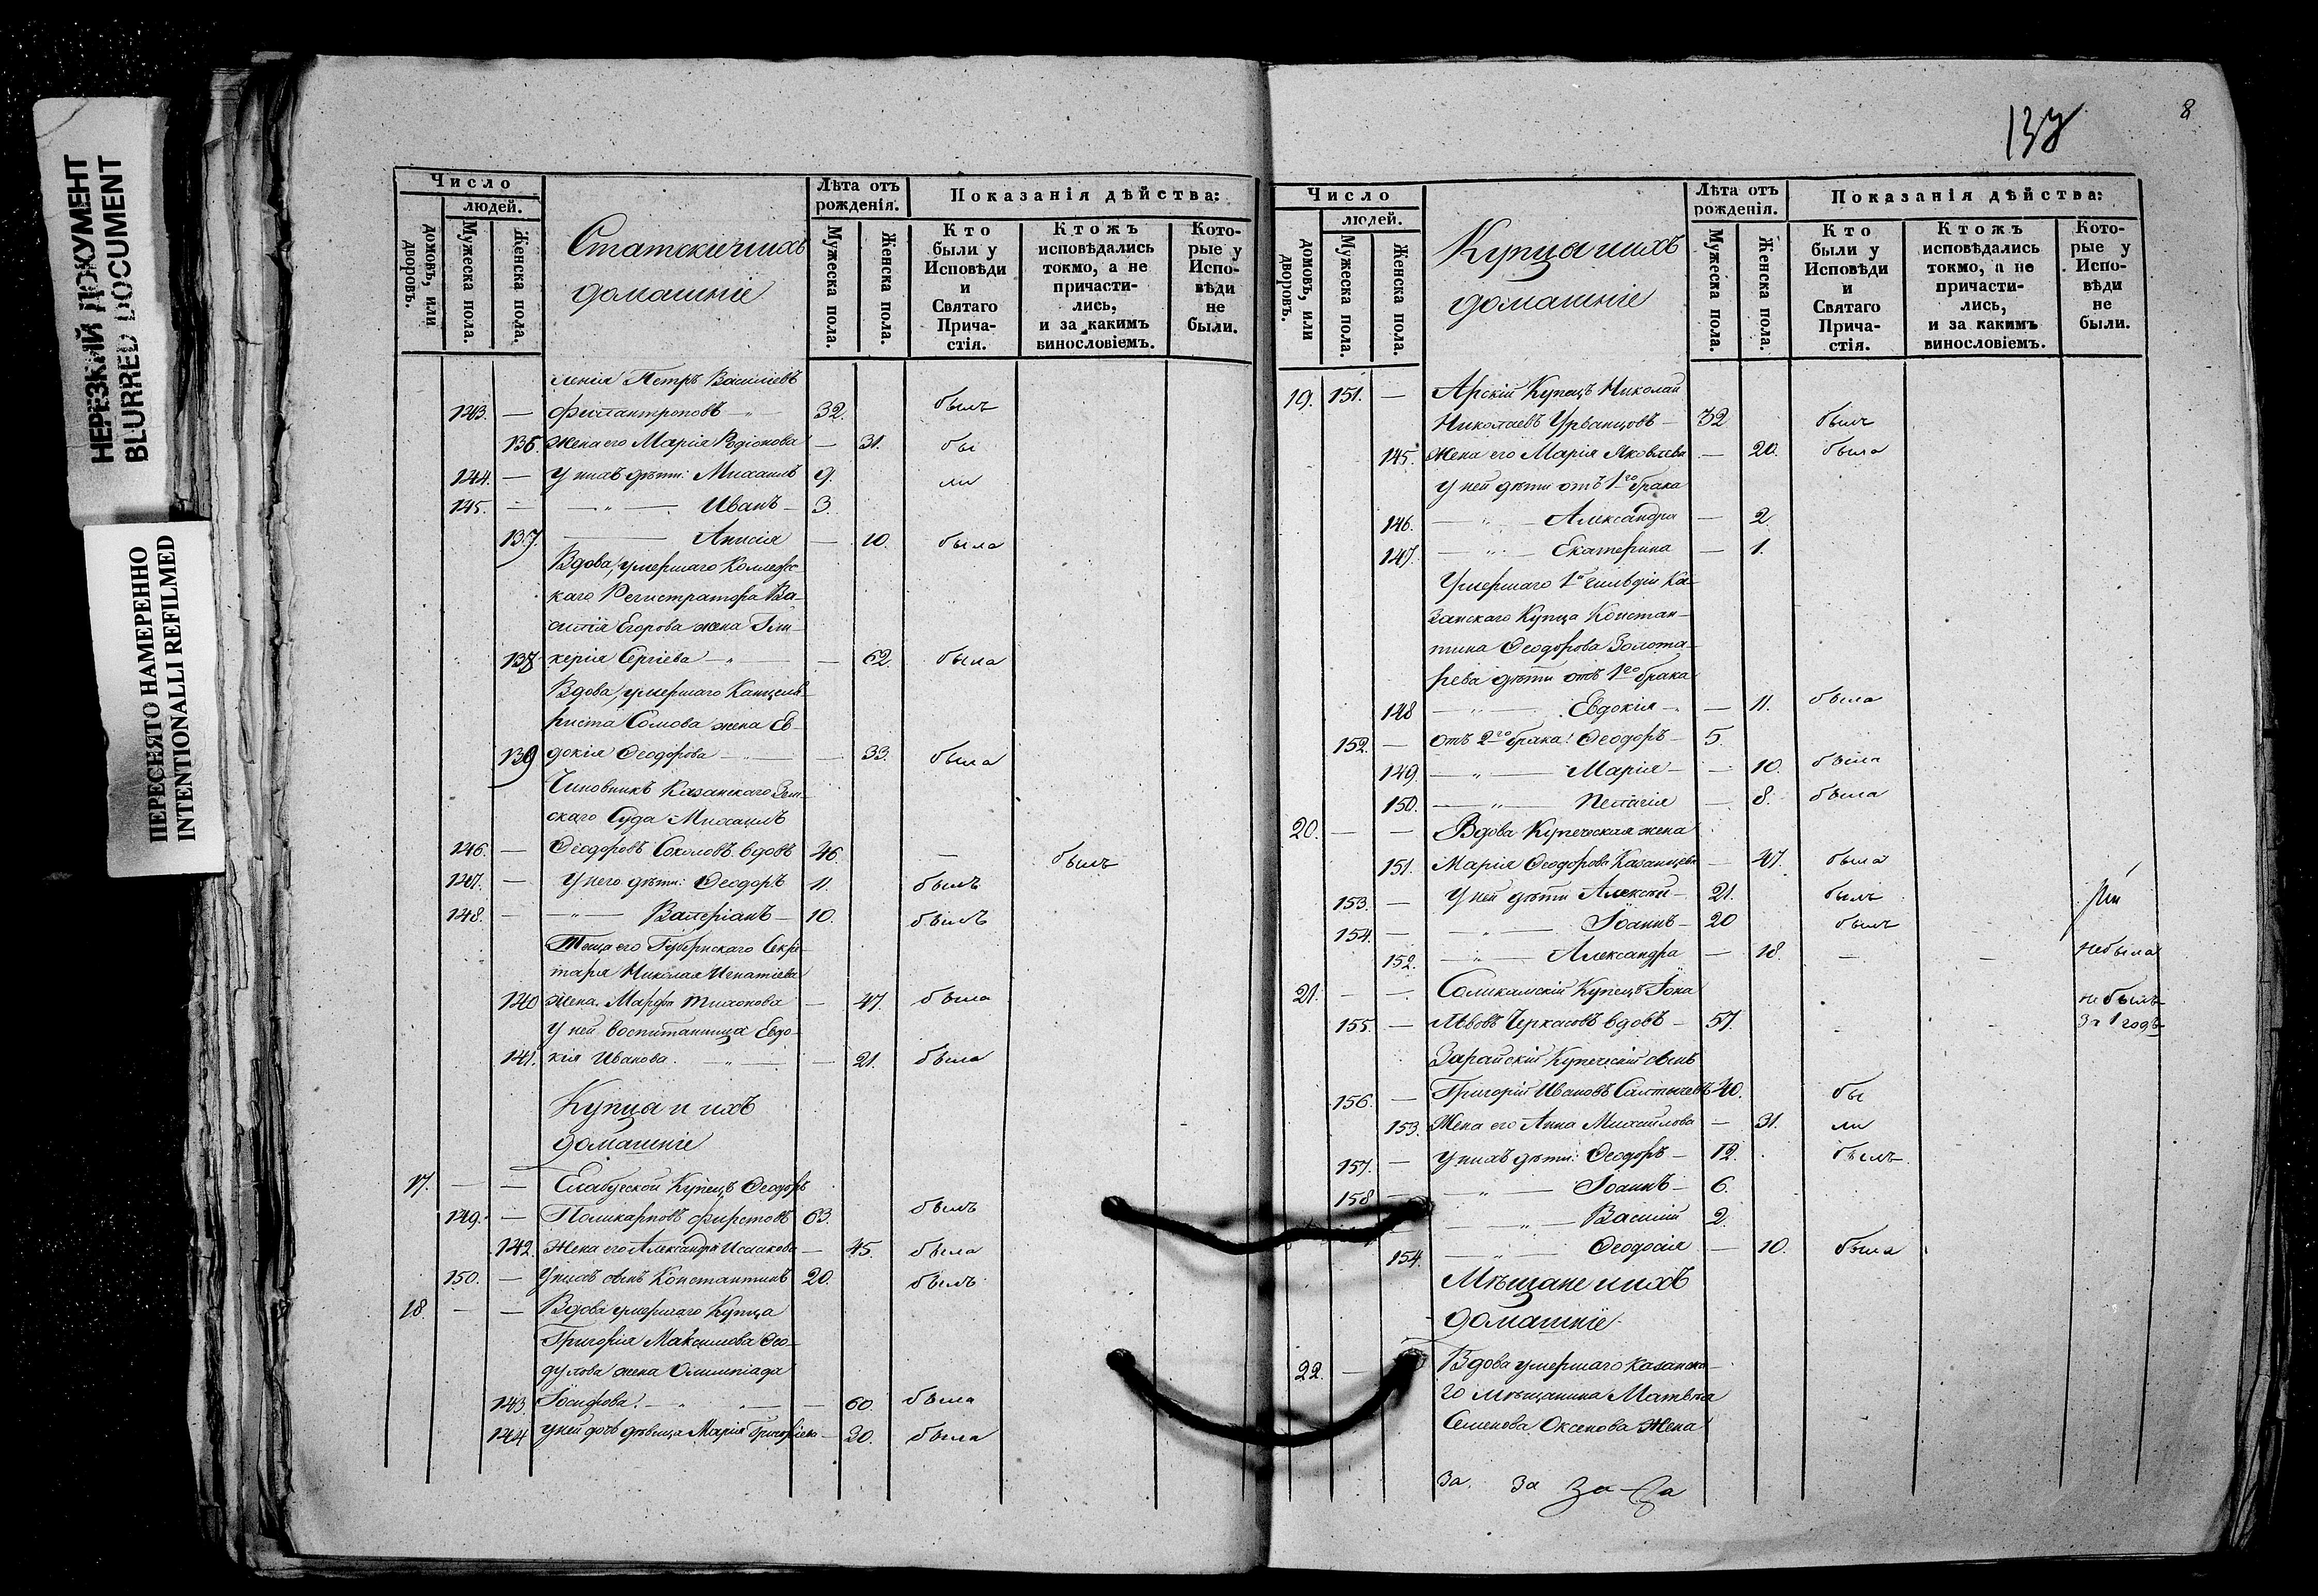 НЕРЕЗКИЙ ДОКУМЕНТ
BLURRED DOCUMENT
ПЕРЕСНЯТО НАМЕРЕННО
INTENTIONALLI REFILMED
Число
людей.
домовъ, или дворовъ.
Мужеска пола.
Женска пола.
Статскіе и ихъ
домашніе
Лѣта отъ рожденія.
Мужеска пола.
Женска пола.
Показанія дѣйства:
Кто были у Исповѣди и Святаго Причастія.
Ктожъ исповѣдались токмо, а не причастились, и за какимъ винословіемъ.
Которые у Исповѣди не были.
ленія Петръ Васильевъ
143. — Филантроповъ — 32. былъ
136. Жена его Марія Родіонова — 31. бы
144. — У нихъ дѣти: Михаилъ 9. ли
145. — — „ — Иванъ — 3.
137 — Анисія — 10. была
Вдова, умершаго Коллежс
каго Регистратора Ва-
силія Егорова жена Гли-
138 керія Сергіева — „ — — 62. была
Вдова, умершаго Канцеля-
риста Сомова жена Ев-
139 докія Ѳеодорова — — 33. была
Чиновникъ Казанскаго Зем-
скаго Суда Михаилъ
146. — Ѳеодоровъ Соколовъ вдовъ 46. — былъ
147. — У него дѣти: Ѳеодоръ 11. былъ
148. — — „ — Валеріанъ — 10. былъ
Теща его Губернскаго Секре-
таря Николая Игнатіева
140 жена Марфа Тихонова — 47. была
У ней воспитанница Евдо-
141. кія Иванова. — „ — — 21. была
Купцы и ихъ
домашніе
17. — — Елабужской Купецъ Ѳеодоръ
149. — Поликарповъ Фирстовъ 63. былъ
142. Жена его Александра Исаакова — 45. была
150. — У нихъ сынъ Константинъ 20. былъ
18. — — Вдова умершаго Купца
Григорія Максимова Ѳео-
дулова жена Олимпіада
143. Іосифова. — „ — — 60. была
144 У ней дочь дѣвица Марія Григорьева — 30. была
138
8
Число
людей.
домовъ, или дворовъ.
Мужеска пола.
Женска пола.
Купцы и ихъ
домашніе
Лѣта отъ рожденія.
Мужеска пола.
Женска пола.
Показанія дѣйства:
Кто были у Исповѣди и Святаго Причастія.
Ктожъ исповѣдались токмо, а не причастились, и за какимъ винословіемъ.
Которые у Исповѣди не были.
19. 151. — Арскій Купецъ Николай
Николаевъ Урванцовъ — 32 былъ
145. Жена его Марія Яковлева — 20. была
У ней дѣти отъ 1го брака
146. — „ — Александра — 2.
147. — „ — Екатерина — 1.
Умершаго 1й гильдіи Ка-
занскаго Купца Констан-
тина Ѳеодорова Золота-
рева дѣти отъ 1го брака
148 — „ — Евдокія — — 11. была
152. — Отъ 2го брака: Ѳеодоръ — 5.
149. — „ — Марія — — 10. была
150. — „ — Пелагія — 8. была
20. — — Вдова Купеческая жена
151. Марія Ѳеодорова Казанцева — 47. была
153. — У ней дѣти Алексѣй — 21. былъ
154. — — „ — Іоаннъ — 20 былъ
152. — „ — Александра — 18. — — Небыла
21. — — Соликамскій Купецъ Іона
155. — Львовъ Черкасовъ вдовъ — 57. Не былъ
За 1 годъ
Зарайскій Купеческій сынъ
156. — Григорій Ивановъ Салтычевъ 40. бы
153. Жена его Анна Михайлова — 31. ли
157. — У нихъ дѣти: Ѳеодоръ — 12. былъ
158 — — „ — Іоаннъ — 6.
— „ — Василій 2.
154. — „ — Ѳеодосія — 10. была
Мѣщане и ихъ
домашніе
22. — Вдова умершаго Казанска-
го мѣщанина Матвѣя
Семенова Оксенова Жена
За. За За-За